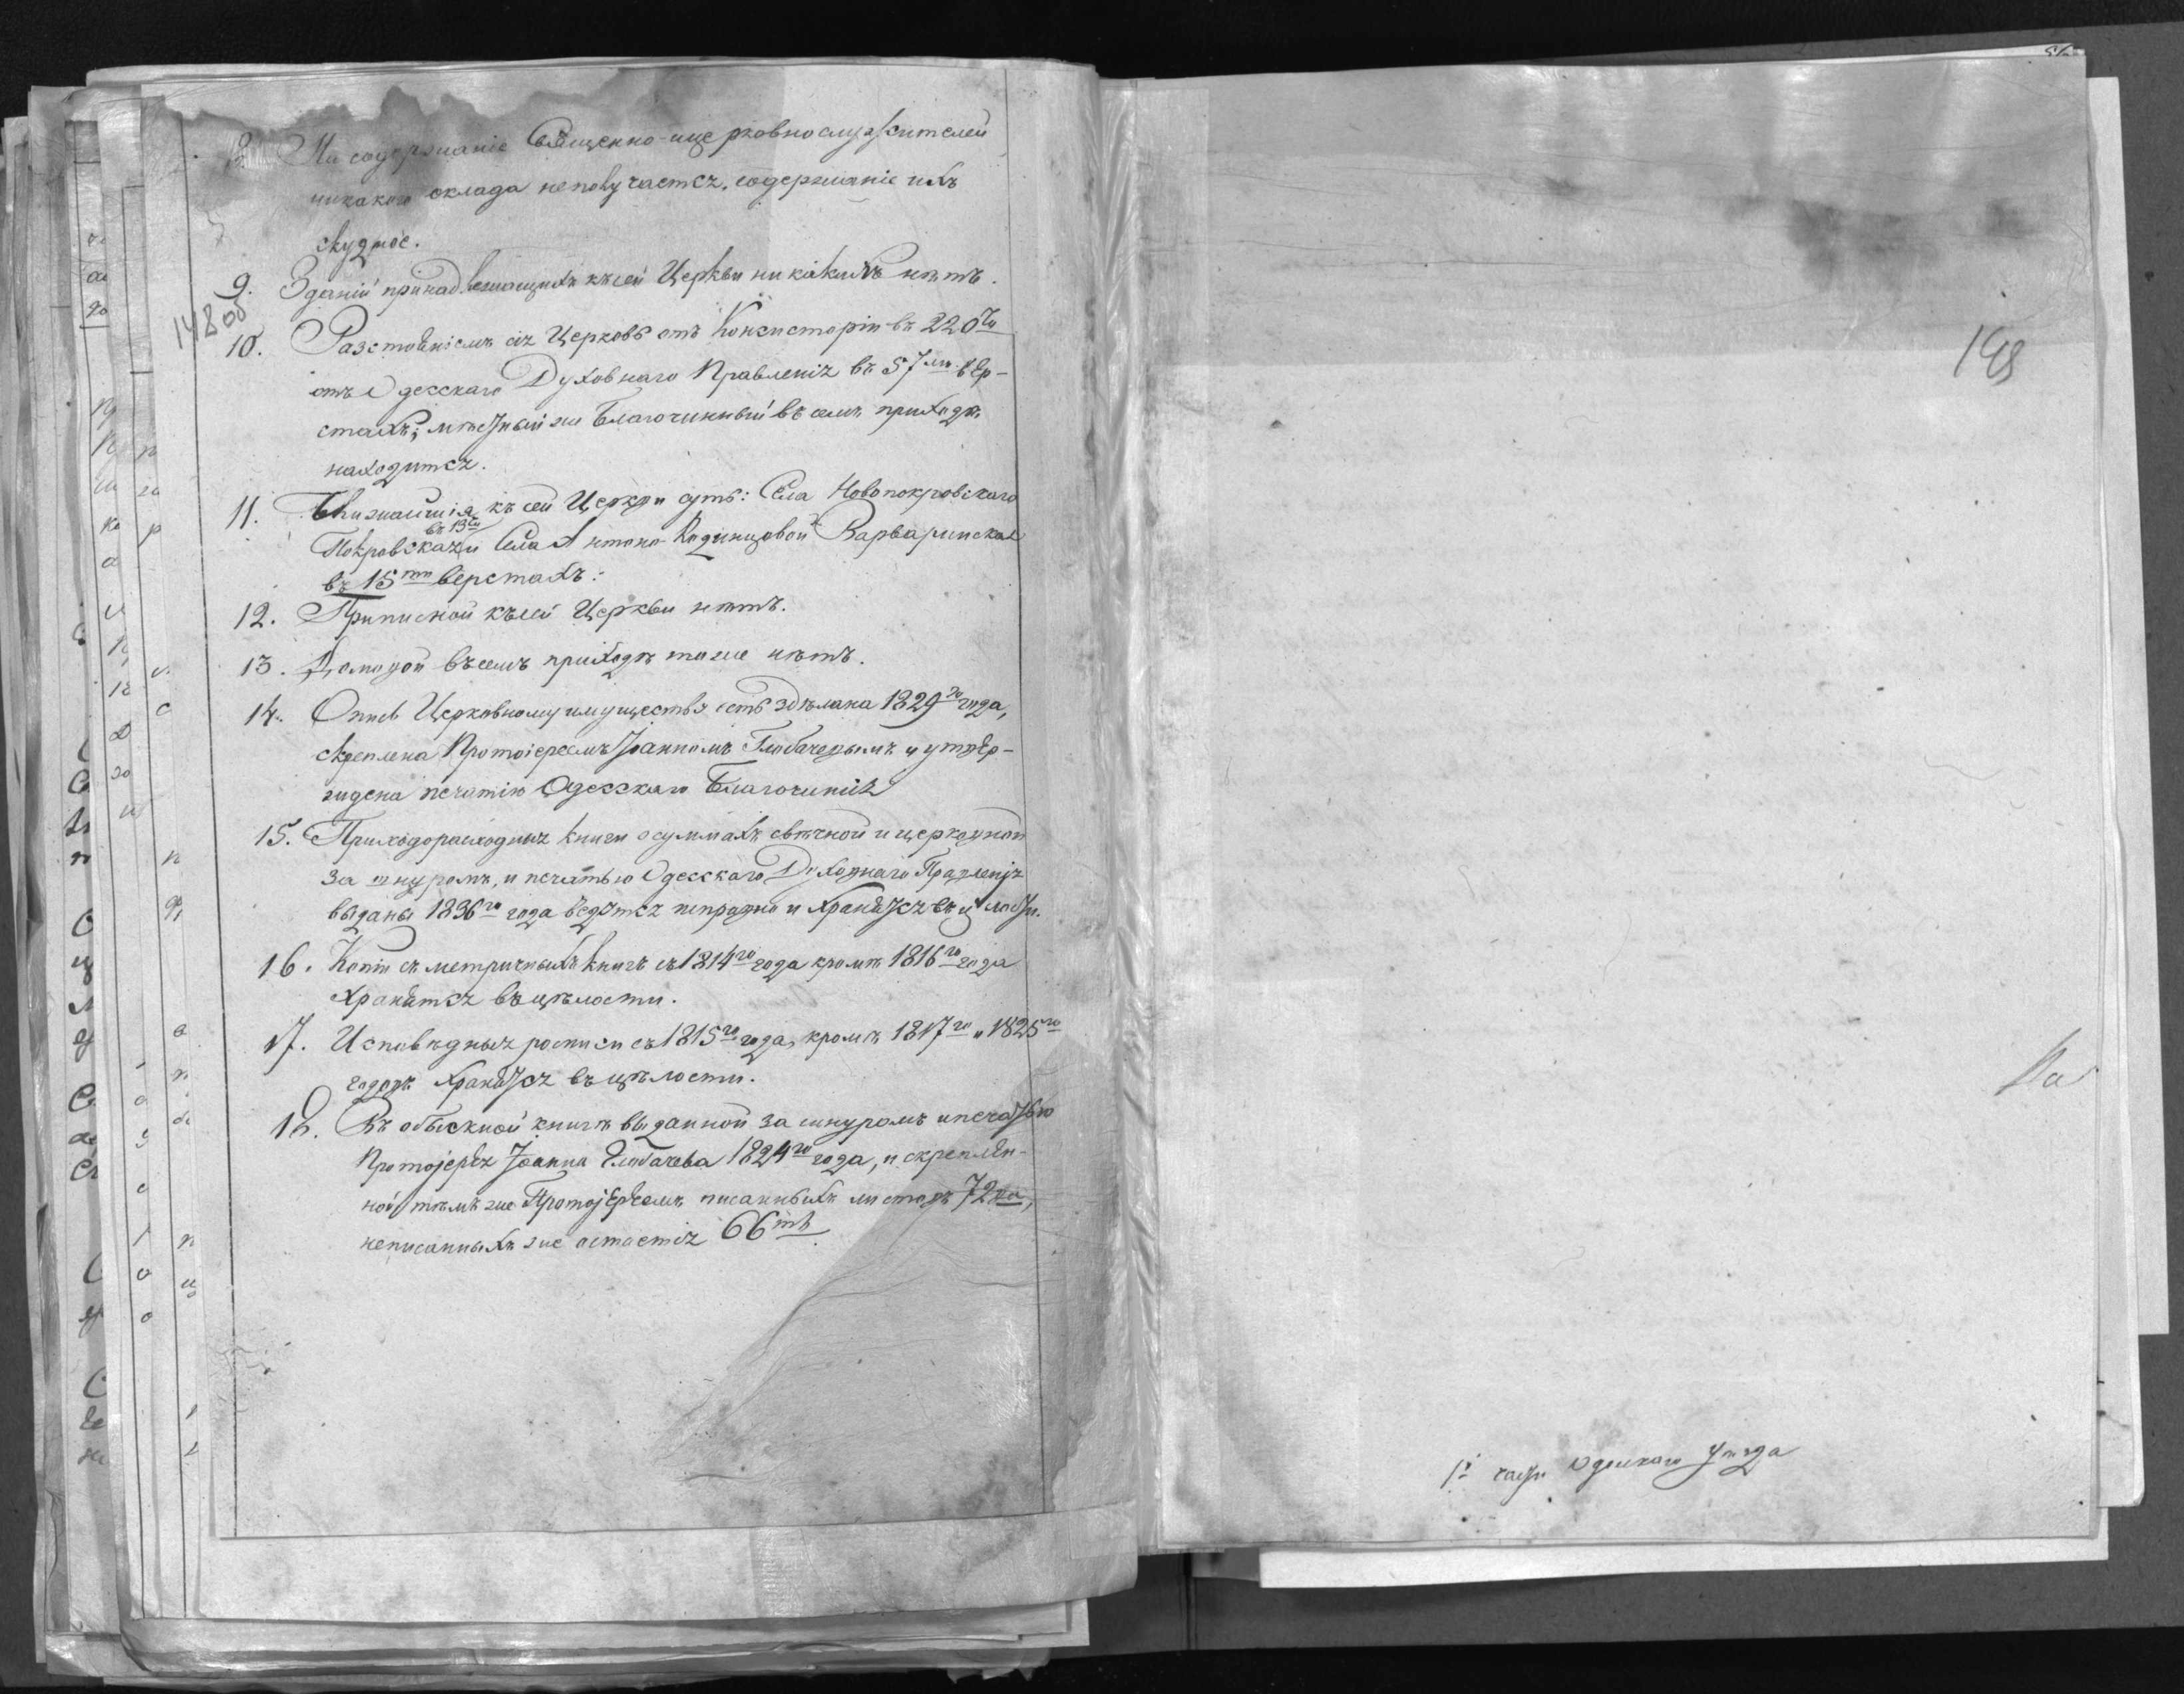 8. На содержаніе Священно-ицерковнослужителей
никакого оклада неполучается, содержаніе ихъ
скудное.
9. Зданій принадлежащихъ къ сей Церкви никакихъ нѣтъ.
148 об
10. Разстояніемъ сія Церковь отъ Консисторіи въ 220ти
отъ Одесскаго Духовнаго Правленія въ 57ми вер-
стахъ; мѣстный же Благочинный въ семъ приходѣ
находится.
11. Ближайшія къ сей Церкви суть: Села Новопокровскаго
въ 13ти
Покровская и Села Антоно-Кодинцовой Варваринская
въ 15ти верстахъ:
12. Приписной къ сей Церкви нѣтъ.
13. Домовой въ семъ приходѣ тоже нѣтъ.
14. Опись Церковному имуществу есть здѣлана 1829го года,
скреплена Протоіереемъ Іоанномъ Глобачевымъ и утвер-
ждена печатію Одесскаго Благочинія
15. Приходорасходныя книги о суммахъ свѣчной и церковной
за шнуромъ, и печатью Одесскаго Духовнаго Правленія
выданы 1836го года ведутся исправно и хранятся въ цѣлости.
16. Копіи съ метричныхъ книгъ съ 1814го года кромѣ 1816го года
хранятся въ цѣлости.
17. Исповѣдныя росписи съ 1815го года, кромѣ 1817го и 1825го
годовъ хранятся въ цѣлости.
18. Въ обыскной книгѣ выданной за шнуромъ и печатью
Протоіерея Іоанна Глобачева 1824го года, и скреплен-
ной тѣмъ же Протоіереемъ писанныхъ листовъ 72ва,
неписанныхъ же остается 66ть
149
1й части Одесскаго Уѣзда